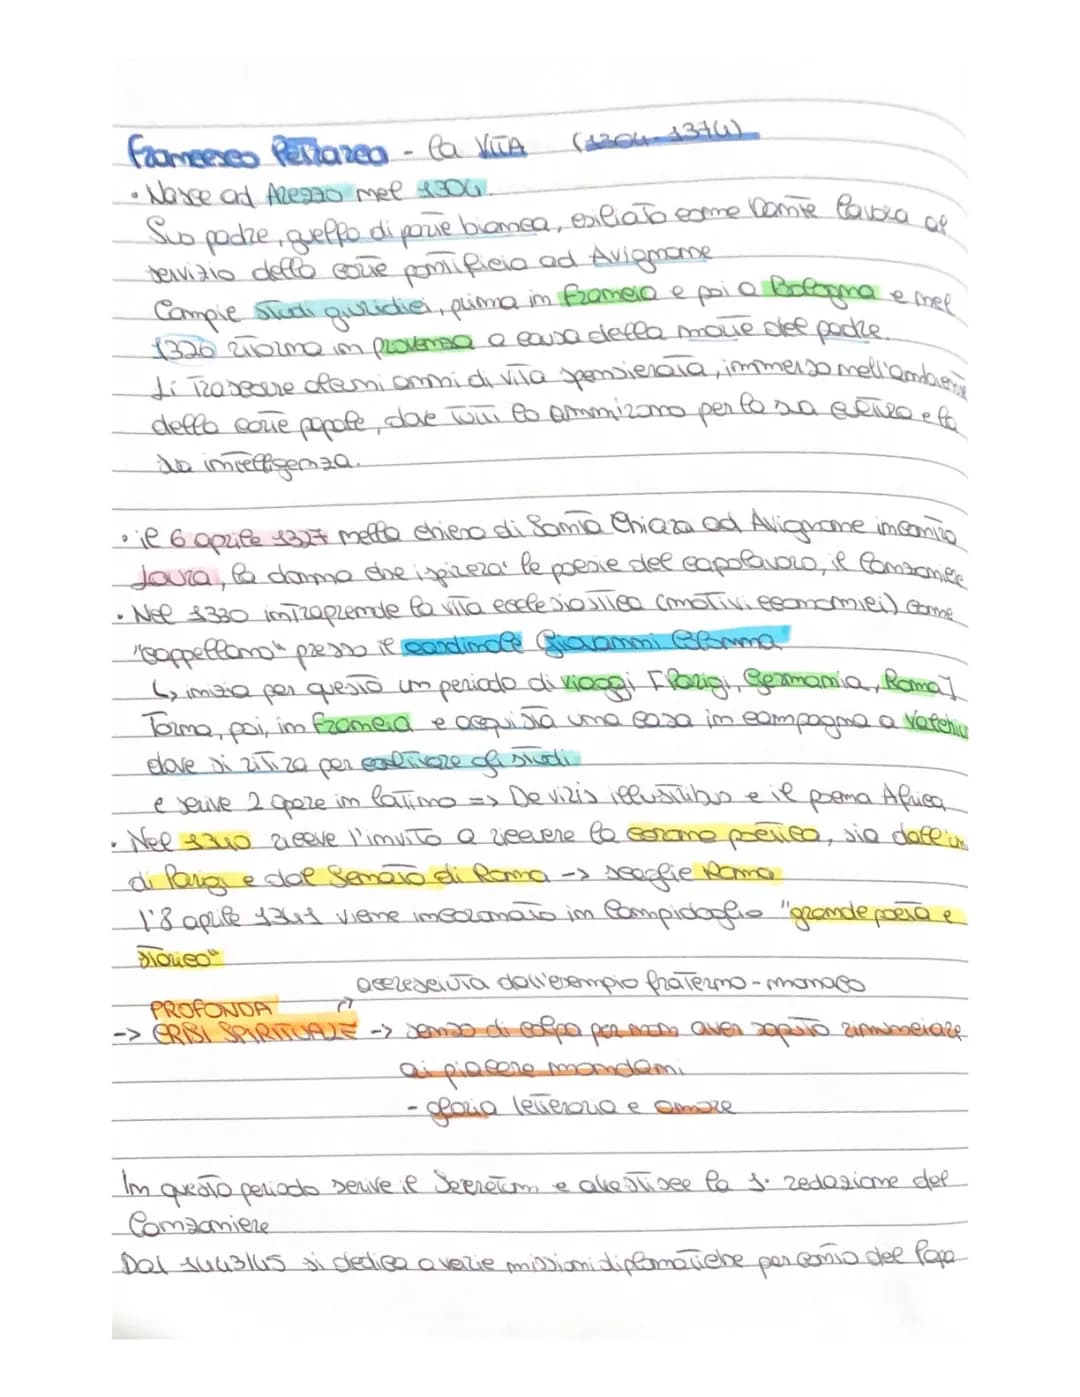 Francesco Petrarca - la VITA (1304-1374)
• Nasce ad Arezzo nel 1304.
Suo padre, guelfo di parte bianca, esiliato come Dante lavora al
servizio della corte pontificia ad Avignone
Compie studi giuridici, prima in Francia e poi a Bologna e nel
1326 ritorna in provenza a causa della morte del padre.
Lì trascorre anni di vita spensierata, immerso nell'ambiente
della corte papale, dove tutti lo ammirano per la sua e la
sua intelligenza.
• il 6 aprile 1327 nella chiesa di Santa Chiara ad Avignone incontra
Laura, la donna che ispirera' le poesie del capolavoro, il Canzoniere
• Nel 1330 intraprende la vita ecclesiastica (motivi economici) come
"cappellano" presso il cardinale Giovanni Colonna
↳ inizia per questo un periodo di viaggi [Parigi, Germania, Roma]
Torna, poi, in Francia e acquista una casa in campagna a Valchiu
dove si ritira per coltivare gli studi
e scrive 2 opere in latino => De viris illustribus e il poema Africa
• Nel 1340 riceve l'invito a ricevere la corona poetica, sia dall'un
di Parigi e dal Senato di Roma -> sceglie Roma
l'8 aprile 1341 viene incoronato in Campidoglio "grande poeta e
storico"
accresciuta dall'esempio fraterno - monaco
PROFONDA
-> CRISI SPIRITUALE -> senso di colpa per non aver saputo rinunciare
ai piacere mondani
- gloria letteraria e amore
In questo periodo scrive il Secretum e allestisce la 1. redazione del
Canzoniere
Dal si dedica a varie missioni diplomatiche per conto del Papa